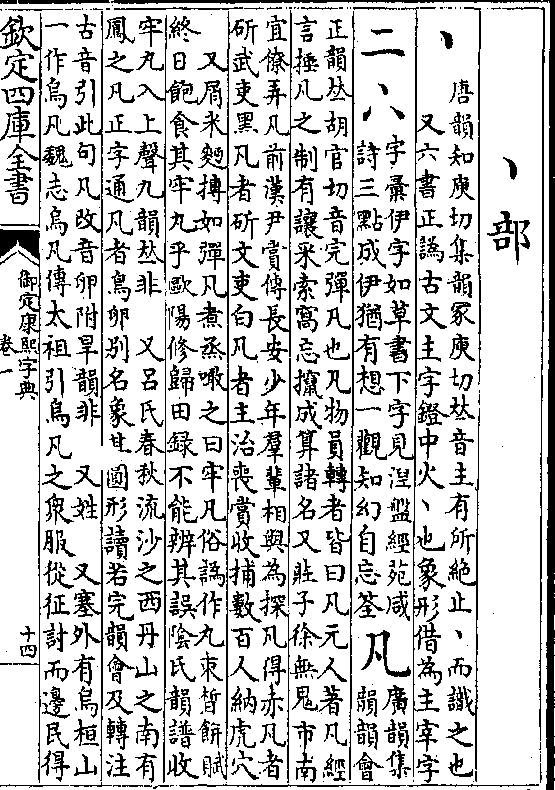 丶部
丶
唐韻知庾切集韻冢庾切𠀤音主有所絶止丶而識之也
又六書正譌古文主字鐙中火丶也象形借為主宰字
二
字彙伊字如草書下字見涅盤經苑咸
詩三點成伊猶有想一觀知幻自忘筌
凡
廣韻集
韻韻會
正韻𠀤胡官切音完彈凡也凡物員轉者皆曰凡元人著凡經
言捶凡之制有讓采索窩忘攛成算諸名又莊子徐無鬼市南
宜僚弄凡前漢尹賞傳長安少年羣輩相與為探凡得赤凡者
斫武吏黑凡者斫文吏白凡者主治喪賞收捕數百人納虎穴
又屑米麪摶如彈凡煮烝噉之曰牢凡俗譌作九束晳餅賦
終日飽食其牢丸乎歐陽修歸田録不能辨其誤陰氏韻譜收
牢丸入上聲九韻𠀤非 又吕氏春秋流沙之西丹山之南有
鳳之凡正字通凡者鳥卵别名象圜形讀若完韻會及轉注
古音引此句凡改音卵附旱韻非 又姓 又塞外有烏桓山
一作烏凡魏志烏凡傳太祖引烏凡之衆服從征討而邊民得
欽定四庫全書
御定康熙字典
卷一
十四